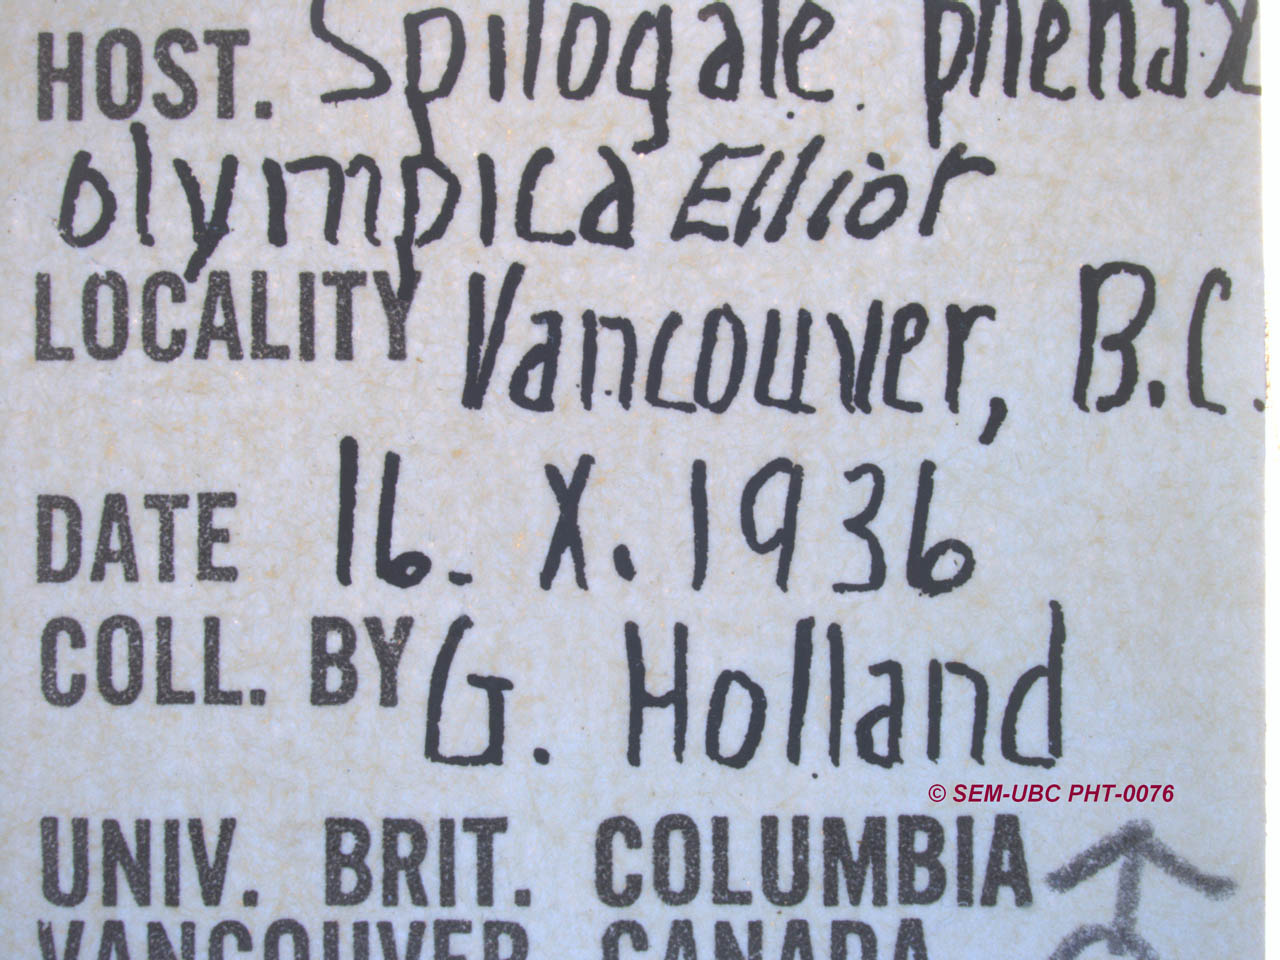 HOST. Spilogale phenax
olympica Elliot
LOCALITY Vancouver, B.C.
DATE 16. X. 1936
COLL. BY G. Holland
© SEM-UBC PHT-0076
UNIV. BRIT. COLUMBIA
VANCOUVER CANADA